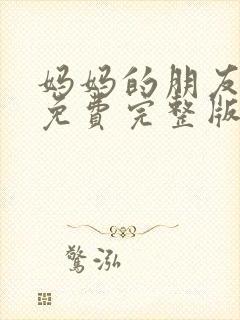 妈妈的朋友
免費完整版
驚泓